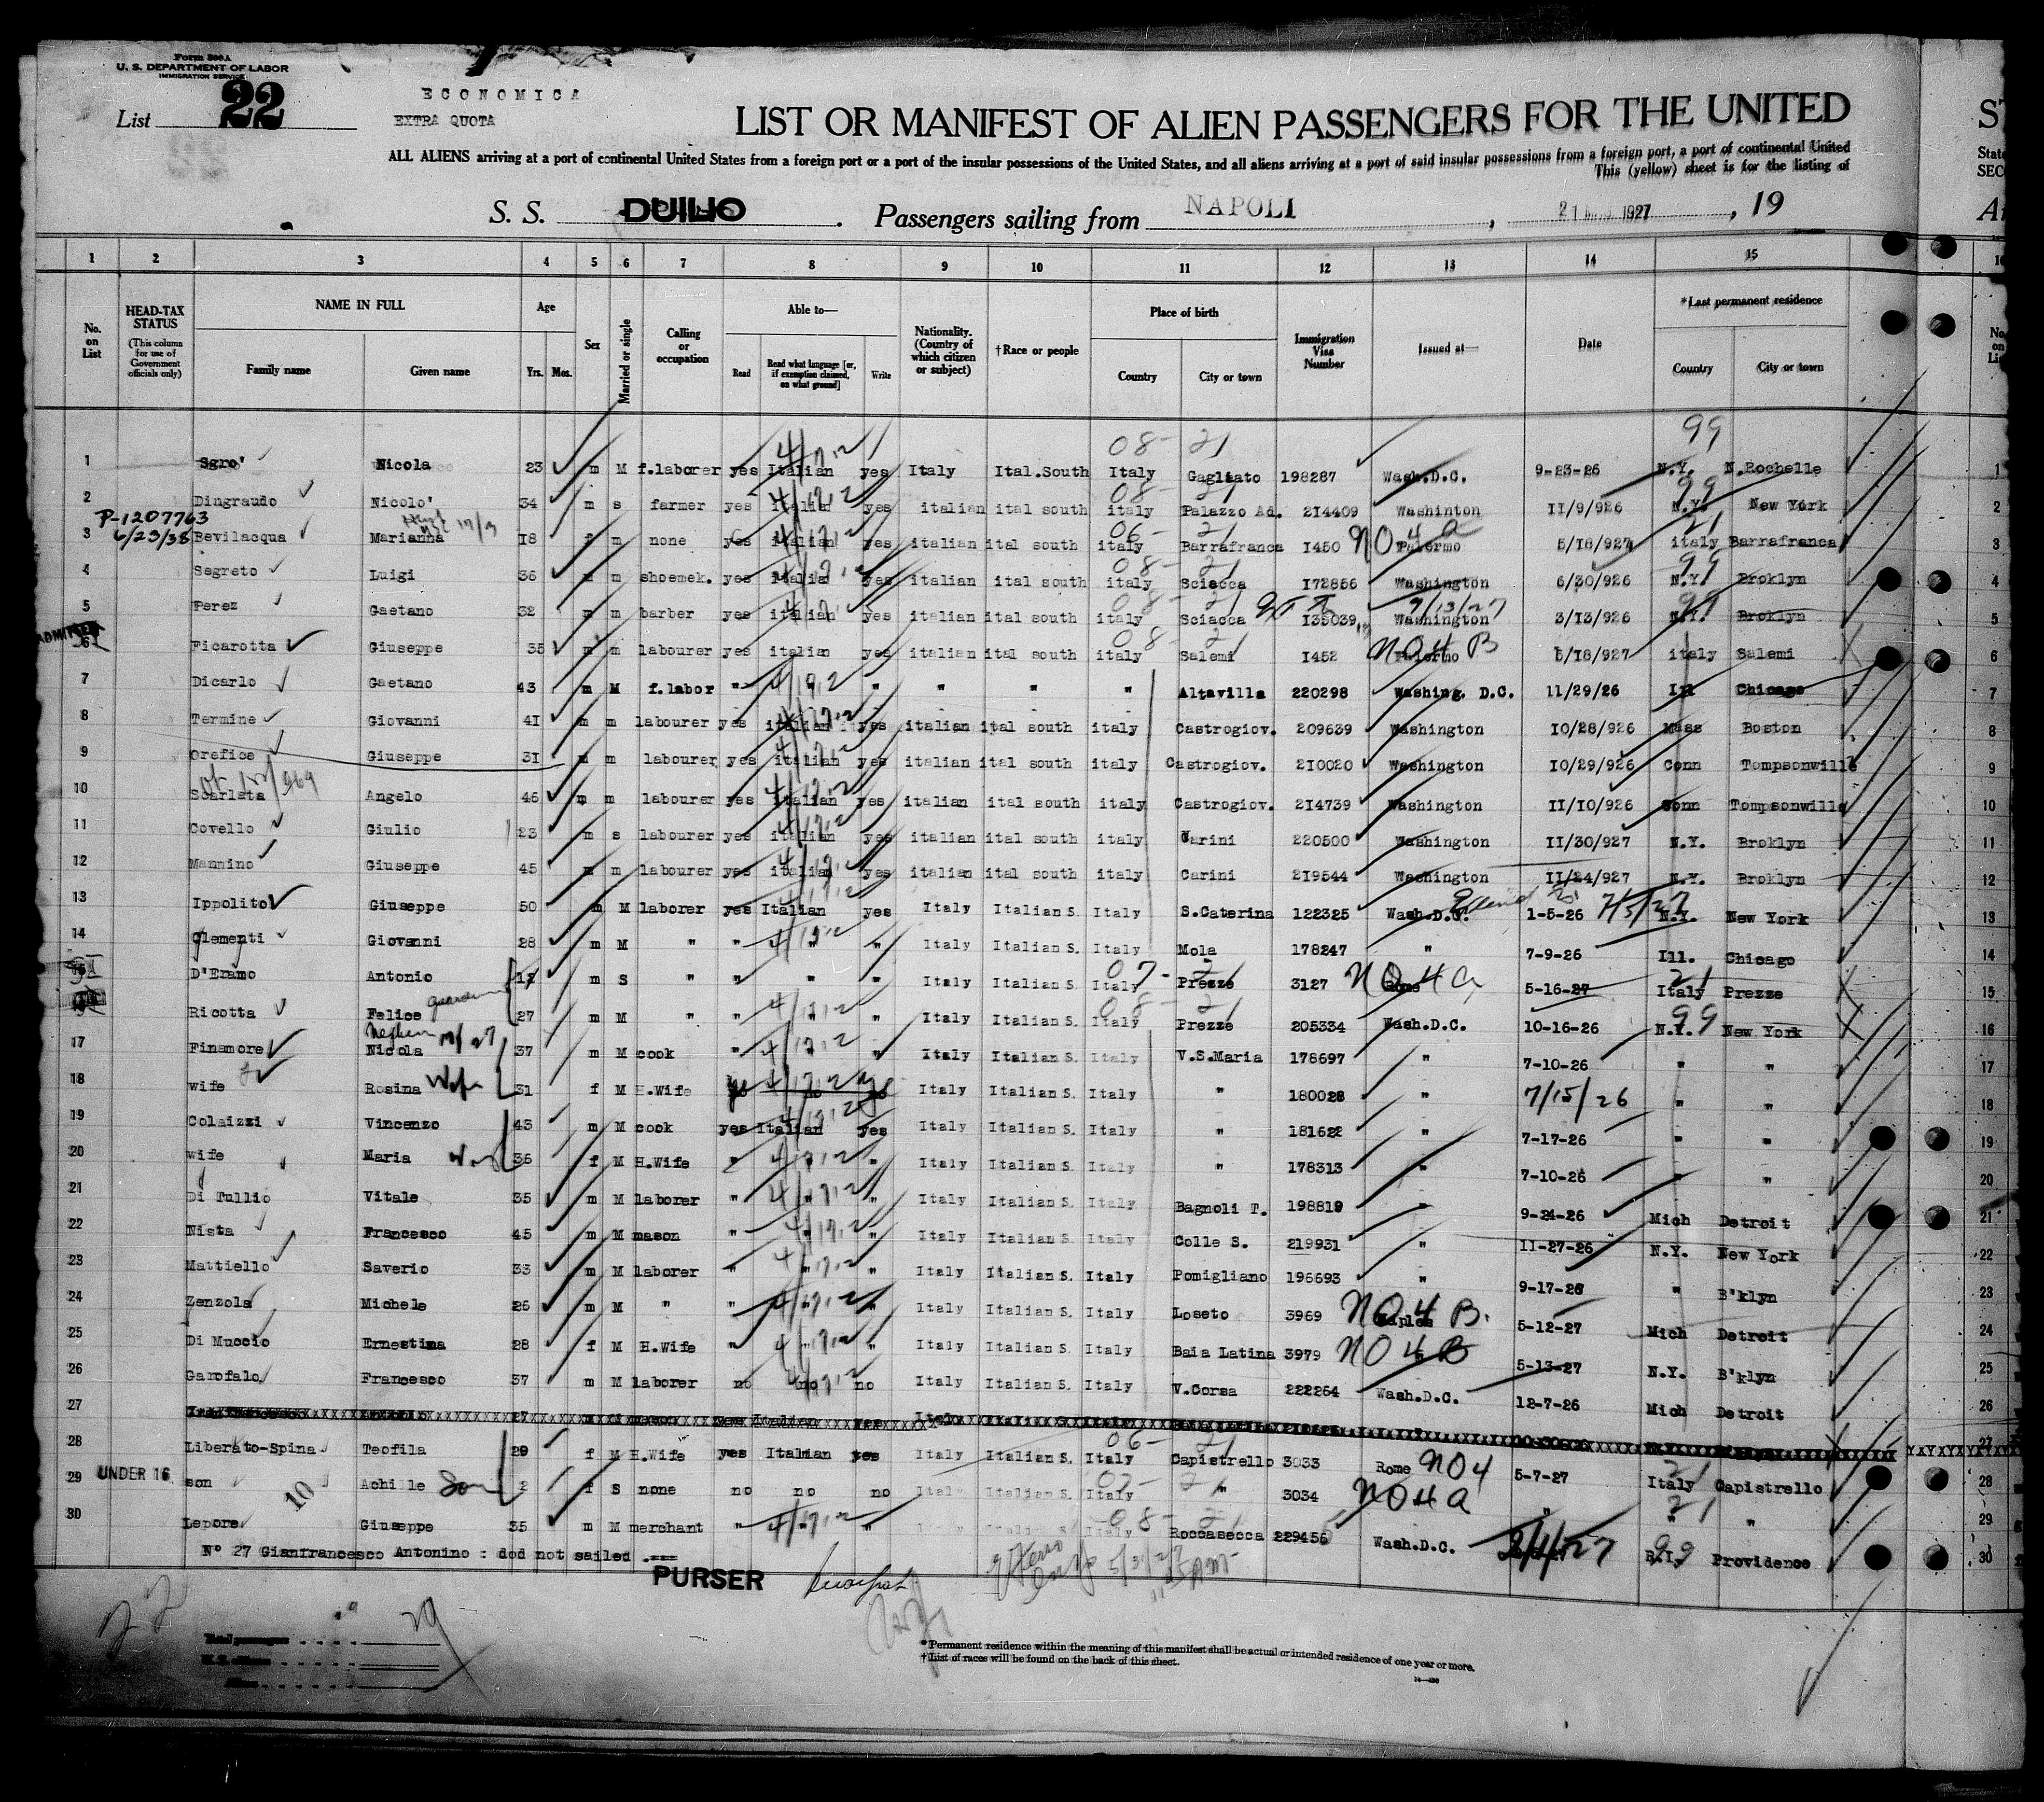 Form 500A
U. S. DEPARTMENT OF LABOR
IMMIGRATION SERVICE
List 22
ECONOMICA
EXTRA QUOTA
LIST OR MANIFEST OF ALIEN PASSENGERS FOR THE UNITED
ALL ALIENS arriving at a port of continental United States from a foreign port or a port of the insular possessions of the United States, and all aliens arriving at a port of said insular possessions from a foreign port, a port of continental United
This (yellow) sheet is for the listing of
S. S. DUILIO. Passengers sailing from NAPOLI, 21 1927, 19
1 2 3 4 5 6 7 8 9 10 11 12 13 14 15
No. on List
HEAD-TAX STATUS (This column for use of Government officials only)
NAME IN FULL
Family name Given name
Age Yrs. Mos.
Sex
Married or single
Calling or occupation
Able to—
Read Read what language [or, if exemption claimed, on what ground] Write
Nationality. (Country of which citizen or subject)
†Race or people
Place of birth
Country City or town
Immigration Visa Number
Issued at—
Date
*Last permanent residence
Country City or town
1 Sgro' Nicola 23 m M f.laborer yes Italian yes Italy Ital.South Italy Gagliato 198287 Wash.D.C. 9-23-26 N.Y. N.Rochelle 1
2 Dingraudo Nicolo' 34 m s farmer yes italian yes italian ital south italy Palazzo Ad. 214409 Washinton 11/9/926 N.Y. New York 2
P-1207763
6/23/38
3 Bevilacqua Marianna 18 f m none yes italian yes italian ital south italy Barrafranca 1450 NO 4 a Palermo 5/18/927 italy Barrafranca 3
4 Segreto Luigi 36 m m shoemek. yes italian yes italian ital south italy Sciacca 172856 Washington 6/30/926 N.Y. Broklyn 4
5 Perez Gaetano 32 m m barber yes italian yes italian ital south italy Sciacca 135039 Washington 3/13/926 N.Y. Broklyn 5
ADMITTED
6 Ficarotta Giuseppe 35 m m labourer yes italian yes italian ital south italy Salemi 1452 NO 4 B Palermo 5/18/927 italy Salemi 6
7 Dicarlo Gaetano 43 m M f.labor " " " " " " Altavilla 220298 Washing. D.C. 11/29/26 Ill Chicago 7
8 Termine Giovanni 41 m m labourer yes italian yes italian ital south italy Castrogiov. 209639 Washington 10/28/926 Mass Boston 8
9 Orefice Giuseppe 31 m m labourer yes italian yes italian ital south italy Castrogiov. 210020 Washington 10/29/926 Conn Tompsonwille 9
10 Scarlata Angelo 46 m m labourer yes italian yes italian ital south italy Castrogiov. 214739 Washington 11/10/926 Conn Tompsonwille 10
11 Covello Giulio 23 m s labourer yes italian yes italian ital south italy Carini 220500 Washington 11/30/927 N.Y. Broklyn 11
12 Mannino Giuseppe 45 m m labourer yes italian yes italian ital south italy Carini 219544 Washington 11/24/927 N.Y. Broklyn 12
13 Ippolito Giuseppe 50 m M laborer yes Italian yes Italy Italian S. Italy S.Caterina 122325 Wash.D.C. 1-5-26 N.Y. New York 13
14 Clementi Giovanni 28 m M " " " " Italy Italian S. Italy Mola 178247 " 7-9-26 Ill. Chicago 14
D'Eramo Antonio 17 m S " " " " Italy Italian S. Italy Prezze 3127 NO 4 a Rome 5-16-27 Italy Prezze 15
Ricotta Felice 27 m M " " " " Italy Italian S. Italy Prezze 205334 Wash.D.C. 10-16-26 N.Y. New York 16
17 Finamore Nicola 37 m M cook " " " Italy Italian S. Italy V.S.Maria 178697 " 7-10-26 " " 17
18 wife Rosina Wife 31 f M H.Wife no no no Italy Italian S. Italy " 180028 " 7/15/26 " " 18
19 Colaizzi Vincenzo 43 m M cook yes Italian yes Italy Italian S. Italy " 181622 " 7-17-26 " " 19
20 wife Maria 36 f M H.Wife " " " Italy Italian S. Italy " 178313 " 7-10-26 " " 20
21 Di Tullio Vitale 35 m M laborer " " " Italy Italian S. Italy Bagnoli T. 198819 " 9-24-26 Mich Detroit 21
22 Nista Francesco 45 m M mason " " " Italy Italian S. Italy Colle S. 219931 " 11-27-26 N.Y. New York 22
23 Mattiello Saverio 33 m M laborer " " " Italy Italian S. Italy Pomigliano 196693 " 9-17-26 " B'klyn 23
24 Zenzola Michele 26 m M " " " " Italy Italian S. Italy Loseto 3969 NO 4 B. Naples 5-12-27 Mich Detroit 24
25 Di Muccio Ernestina 28 f M H.Wife " " " Italy Italian S. Italy Baia Latina 3979 NO 4 B 5-13-27 N.Y. B'klyn 25
26 Garofalo Francesco 37 m M laborer no no no Italy Italian S. Italy V.Corsa 222264 Wash.D.C. 12-7-26 Mich Detroit 26
27
28 Liberato-Spina Teofila 29 f M H.Wife yes Italian yes Italy Italian S. Italy Capistrello 3033 Rome NO 4 5-7-27 Italy Capistrello 28
29 UNDER 16 son Achille Son 2 f S none no no no Italy Italian S. Italy " 3034 NO 4 a " " " 29
30 Lepore Giuseppe 35 m M merchant " " " Roccasecca 229456 Wash.D.C. R.I. Providence 30
N° 27 Gianfrancesco Antonino : dod not sailed .===
PURSER
Total passengers 29
U. S. citizens
Aliens
* Permanent residence within the meaning of this manifest shall be actual or intended residence of one year or more.
† List of races will be found on the back of this sheet.